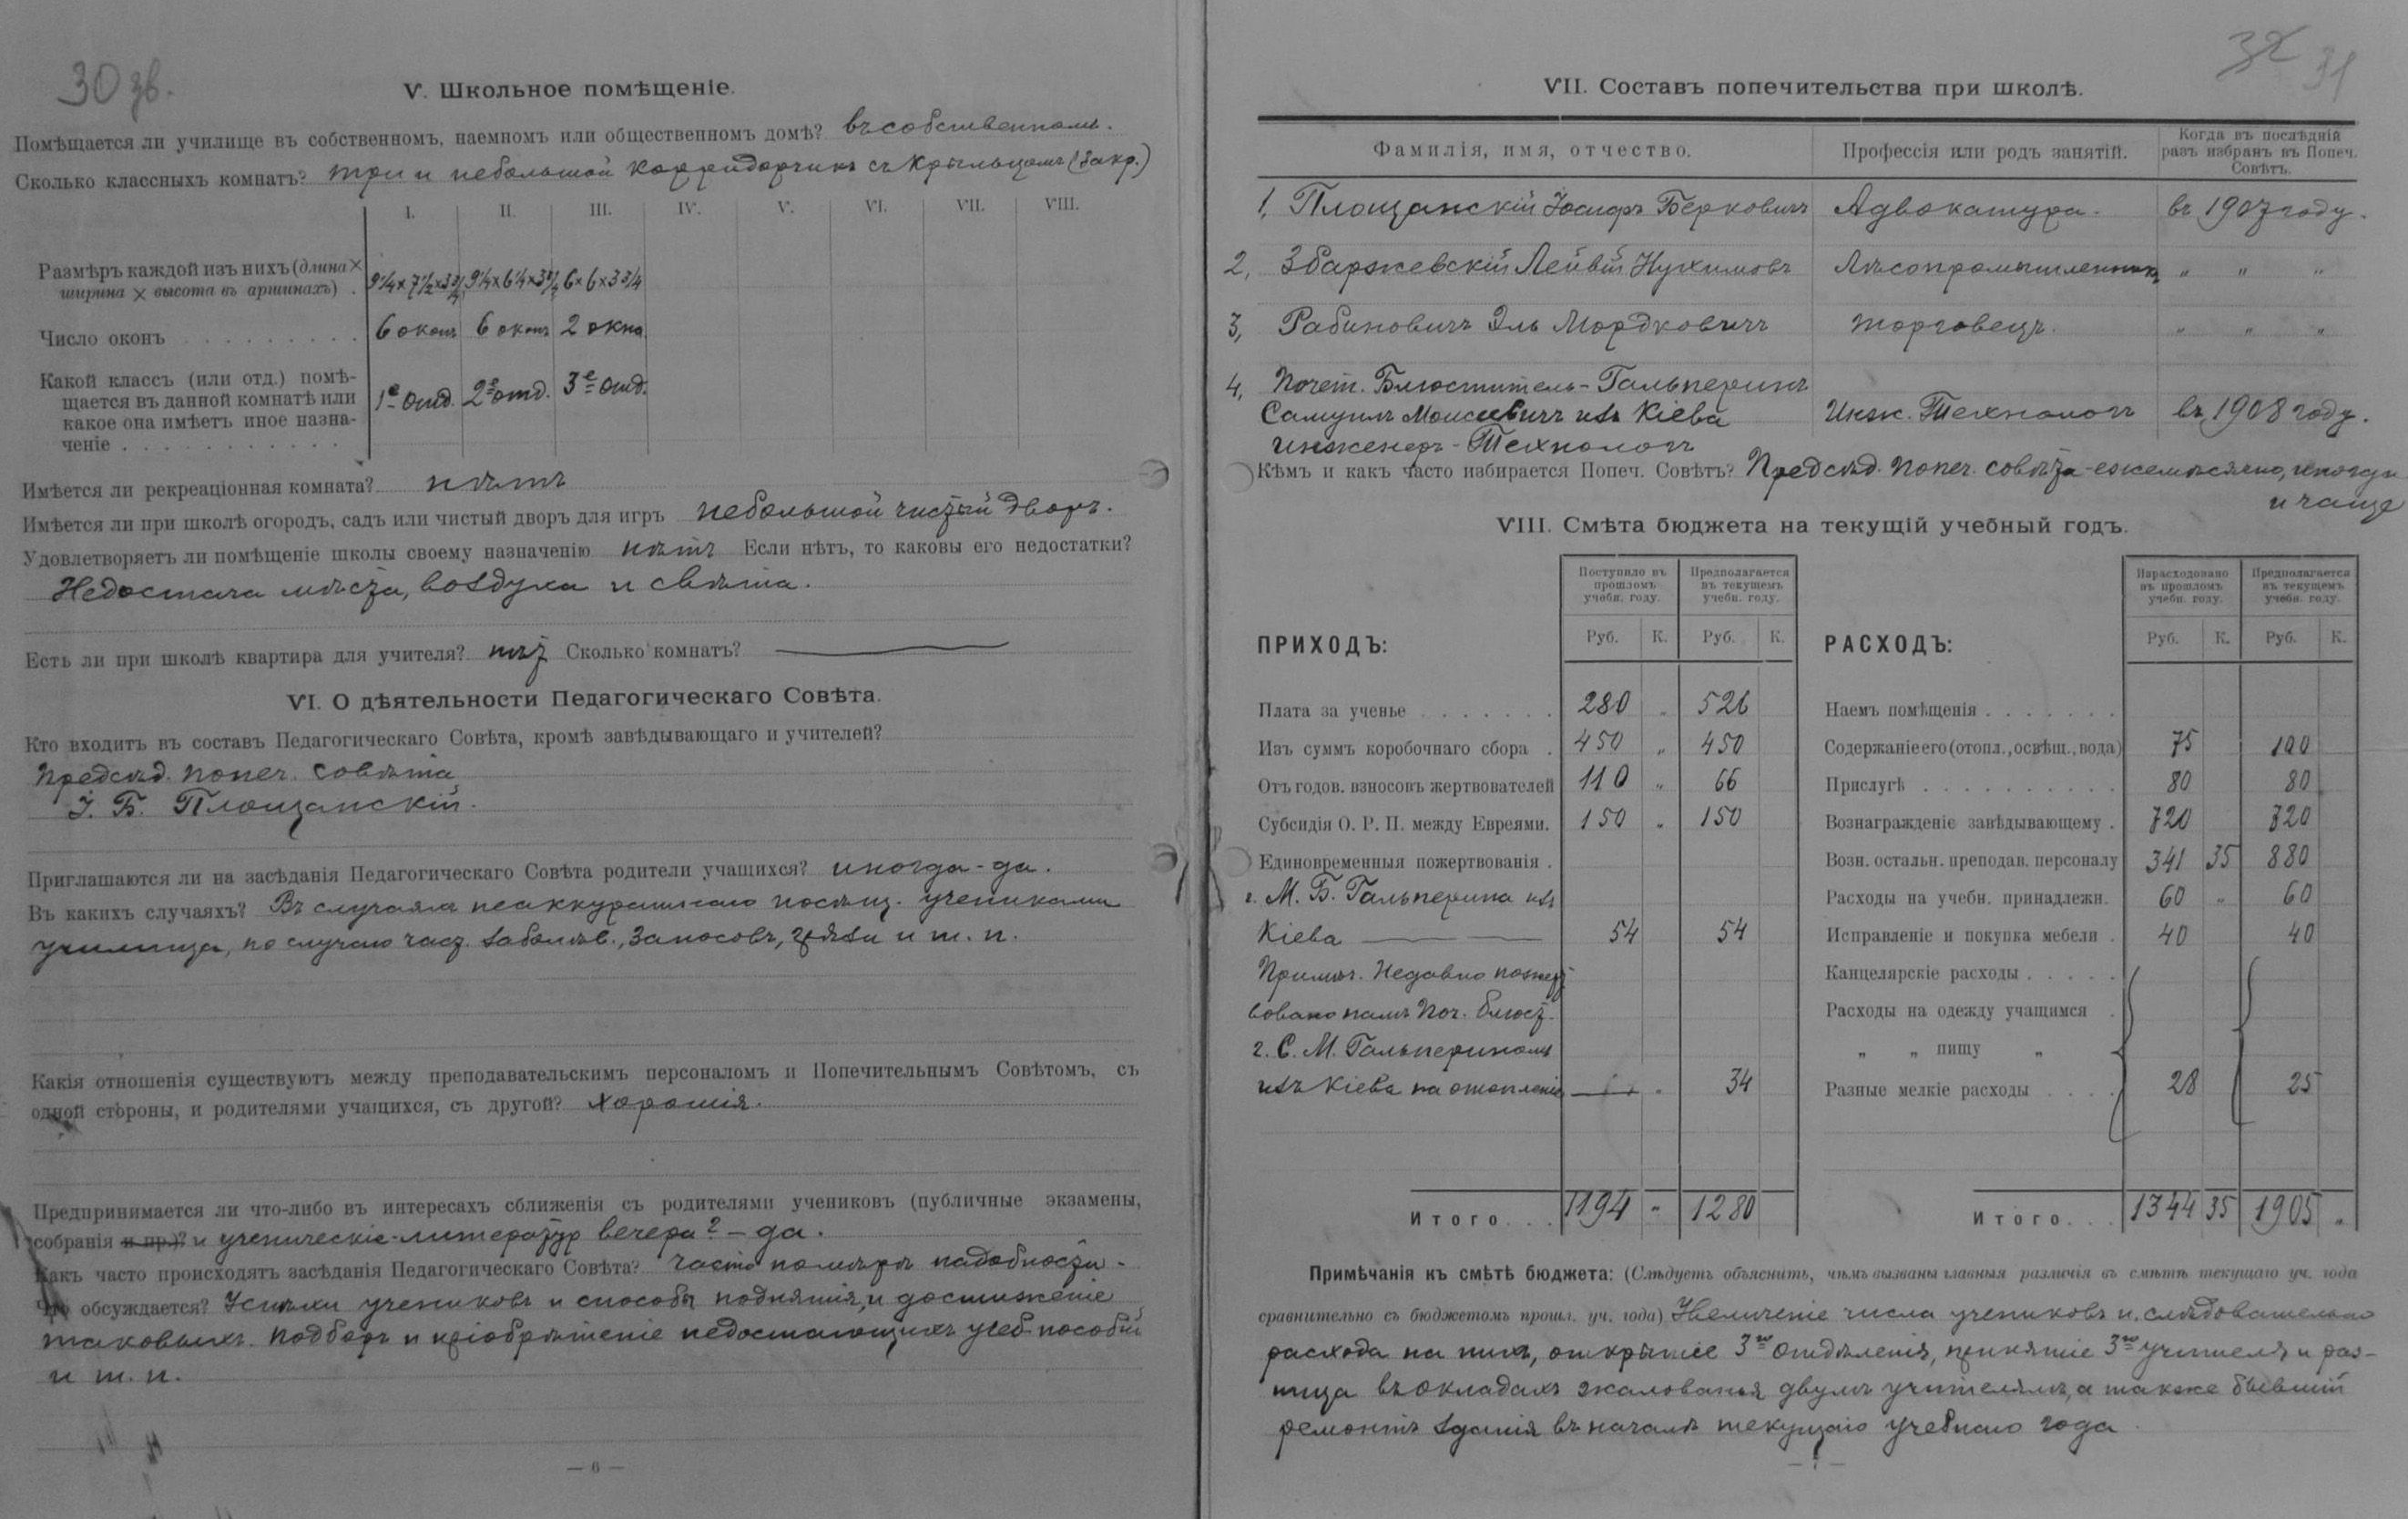 30 зв.
V. Школьное помѣщеніе.
Помѣщается ли училище въ собственномъ, наемномъ или общественномъ домѣ? въ собственномъ.
Сколько классныхъ комнатъ? три и небольшой корридорчикъ съ крыльцомъ (закр.)
I. II. III. IV. V. VI. VII. VIII.
Размѣръ каждой изъ нихъ (длина ×
ширина × высота въ аршинахъ) . 9¼ × 7½ × 3¾ 9¼ × 6¼ × 3¾ 6 × 6 × 3¾
Число оконъ . . . . . . . . . 6 оконъ 6 оконъ 2 окна
Какой классъ (или отд.) помѣ-
щается въ данной комнатѣ или
какое она имѣетъ иное назна-
ченіе . . . . . . . . . . . 1е отд. 2е отд. 3е отд.
Имѣется ли рекреаціонная комната? нѣтъ
Имѣется ли при школѣ огородъ, садъ или чистый дворъ для игръ небольшой чистый дворъ.
Удовлетворяетъ ли помѣщеніе школы своему назначенію нѣтъ Если нѣтъ, то каковы его недостатки?
Недостача мѣста, воздуха и свѣта.
Есть ли при школѣ квартира для учителя? нѣт Сколько комнатъ? —
VI. О дѣятельности Педагогическаго Совѣта.
Кто входитъ въ составъ Педагогическаго Совѣта, кромѣ завѣдывающаго и учителей?
Предсѣд. попеч. совѣта
І. Б. Площанскій.
Приглашаются ли на засѣданія Педагогическаго Совѣта родители учащихся? иногда - да.
Въ какихъ случаяхъ? Въ случаяхъ неаккуратнаго посѣщ. учениками
училища, по случаю част. заболѣв., заносовъ, грязи и т. п.
Какія отношенія существуютъ между преподавательскимъ персоналомъ и Попечительнымъ Совѣтомъ, съ
одной стороны, и родителями учащихся, съ другой? хорошія.
Предпринимается ли что-либо въ интересахъ сближенія съ родителями учениковъ (публичные экзамены,
собранія и пр.)? и ученическіе-литератур вечера? – да.
Какъ часто происходятъ засѣданія Педагогическаго Совѣта? часто по мѣрѣ надобности.
Что обсуждается? Успѣхи учениковъ и способы поднятія, и достиженіе
таковыхъ. Подборъ и пріобрѣтеніе недостающихъ учеб. пособій
и т. п.
— 6 —
32 31
VII. Составъ попечительства при школѣ.
Фамилія, имя, отчество. Профессія или родъ занятій. Когда въ послѣдній
разъ избранъ въ Попеч.
Совѣтъ.
1, Площанскій Іосифъ Берковичъ Адвокатура. въ 1907 году.
2, Збаржевскій Лейвій Нухимовъ Лѣсопромышленникъ " " "
3, Рабиновичъ Эль Мордковичъ торговецъ. " " "
4, Почет. Блюститель - Гальперинъ
Самуилъ Моисеевичъ изъ Кіева Инж. Технологъ въ 1908 году.
инженеръ - Технологъ
Кѣмъ и какъ часто избирается Попеч. Совѣтъ? Предсѣд. попеч. совѣта - ежемѣсячно, иногда
и чаще
VIII. Смѣта бюджета на текущій учебный годъ.
ПРИХОДЪ: Поступило въ прошломъ учебн. году. Руб. К. Предполагается въ текущемъ учебн. году. Руб. К.
Плата за ученье . . . . . . . 280 " 526
Изъ суммъ коробочнаго сбора . 450 " 450
Отъ годов. взносовъ жертвователей 110 " 66
Субсидія О. Р. П. между Евреями. 150 " 150
Единовременныя пожертвованія .
г. М. Б. Гальперина изъ
Кіева — 54 54
Примѣч. Недавно пожерт
вовано намъ Поч. блюст.
г. С. М. Гальпериномъ
изъ Кіева на отопленіе — " 34
Итого . . . 1194 " 1280
РАСХОДЪ: Израсходовано въ прошломъ учебн. году. Руб. К. Предполагается въ текущемъ учебн. году. Руб. К.
Наемъ помѣщенія . . . . . . .
Содержаніе его (отопл., освѣщ., вода) 75 100
Прислугѣ . . . . . . . . . . 80 80
Вознагражденіе завѣдывающему . 720 720
Возн. остальн. преподав. персоналу 341 35 880
Расходы на учебн. принадлежн. 60 " 60
Исправленіе и покупка мебели . 40 40
Канцелярскіе расходы . . . . .
Расходы на одежду учащимся .
" " пищу "
Разные мелкіе расходы . . . . 28 25
Итого . . . 1344 35 1905 "
Примѣчанія къ смѣтѣ бюджета: (Слѣдуетъ объяснить, чѣмъ вызваны главныя различія въ смѣтѣ текущаго уч. года
сравнительно съ бюджетомъ прошл. уч. года) Увеличеніе числа учениковъ и, слѣдовательно
расхода на нихъ, открытіе 3го отдѣленія, принятіе 3го учителя и раз-
ница въ окладахъ жалованья двумъ учителямъ, а также бывшій
ремонтъ зданія въ началѣ текущаго учебнаго года